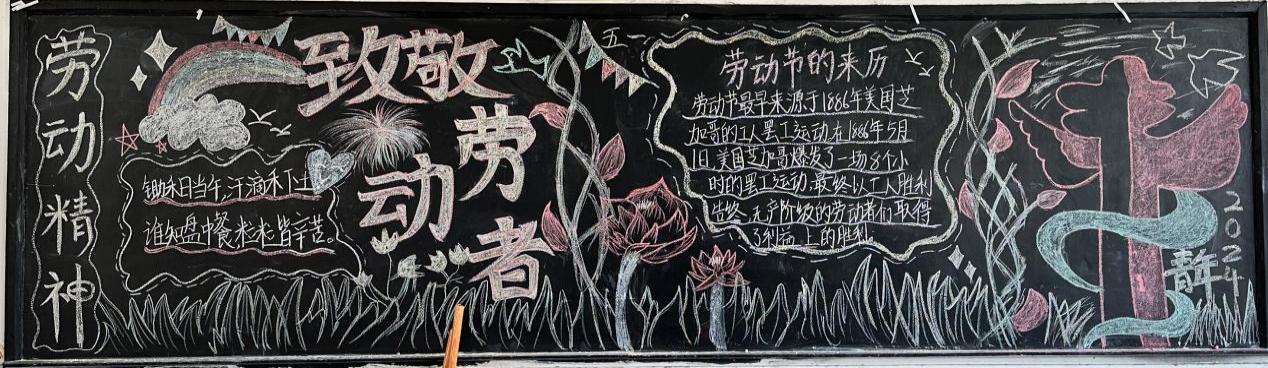 劳动精神
锄禾日当午汗滴禾下土
谁知盘中餐粒粒皆辛苦。
致敬
劳动者
五一
劳动节的来历
劳动节最早来源于1886年美国芝
加哥的工人罢工运动在1886年5月
1日美国芝加哥爆发了一场8个小
时的罢工运动,最终以工人胜利
告终 无产阶级的劳动者们取得
了利益上的胜利
青年
2024